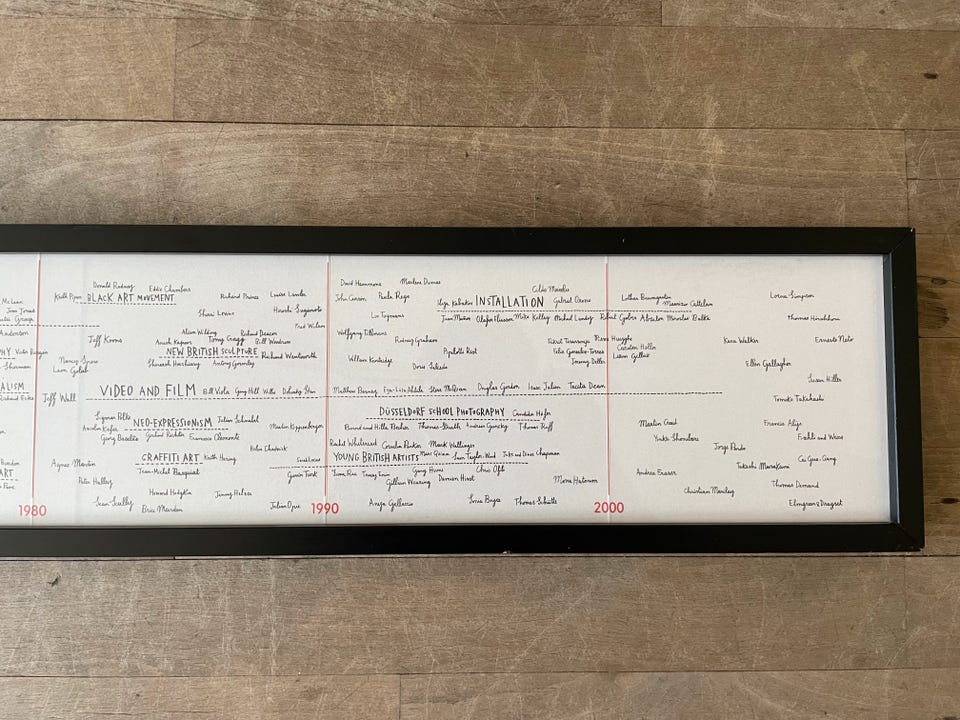 Donald Rodney Eddie Chambers
Keith Piper BLACK ART MOVEMENT
McLean
Richard Prince Louise Lawler
David Hammons Marlene Dumas
John Currin Paula Rego
Cildo Meireles
Ilya Kabakov INSTALLATION Gabriel Orozco
Lothar Baumgarten
Maurizio Cattelan
Lorna Simpson
Hiroshi Sugimoto
Luc Tuymans
Juan Muñoz Olafur Eliasson Mike Kelley Michael Landy Robert Gober Absalon Miroslaw Balka
Thomas Hirschhorn
Anderson
Fred Wilson
Jeff Koons
Alison Wilding Richard Deacon
Anish Kapoor Tony Cragg Bill Woodrow
NEW BRITISH SCULPTURE Richard Wentworth
Antony Gormley
Wolfgang Tillmans
Rodney Graham
Rirkrit Tiravanija Pierre Huyghe
Carsten Höller
Felix Gonzalez-Torres Liam Gillick
Jeremy Deller
Pipilotti Rist
William Kentridge
Kara Walker
Ernesto Neto
Ellen Gallagher
PHY Victor Burgin
Sherman
Nancy Spero
Leon Golub
Susan Hiller
ALISM
Jeff Wall
VIDEO AND FILM Bill Viola Gary Hill Willie Doherty Stan
Matthew Barney Eija-Liisa Ahtila Steve McQueen Douglas Gordon Isaac Julien Tacita Dean
Tomoko Takahashi
DÜSSELDORF SCHOOL PHOTOGRAPHY Candida Höfer
Bernd and Hilla Becher Thomas Struth Andreas Gursky Thomas Ruff
Sigmar Polke
Anselm Kiefer NEO-EXPRESSIONISM Julian Schnabel
Georg Baselitz Francesco Clemente
Martin Kippenberger
Martin Creed
Francis Alÿs
Yinka Shonibare
Fischli and Weiss
Helen Chadwick
Rachel Whiteread Cornelia Parker Mark Wallinger
YOUNG BRITISH ARTISTS Marc Quinn Sam Taylor-Wood Jake and Dinos Chapman
Jorge Pardo
Cai Guo-Qiang
GRAFFITI ART Keith Haring
Jean-Michel Basquiat
Agnes Martin
Sarah Lucas
Gavin Turk Tracey Emin Gary Hume Chris Ofili
Gillian Wearing Damien Hirst
Mona Hatoum
Takashi Murakami
Andrea Fraser
ART
Peter Halley
Thomas Demand
Howard Hodgkin Jenny Holzer
Christian Marclay
Sean Scully
Brice Marden
Julian Opie
Anya Gallaccio
Thomas Schütte
Elmgreen & Dragset
1980
1990
2000